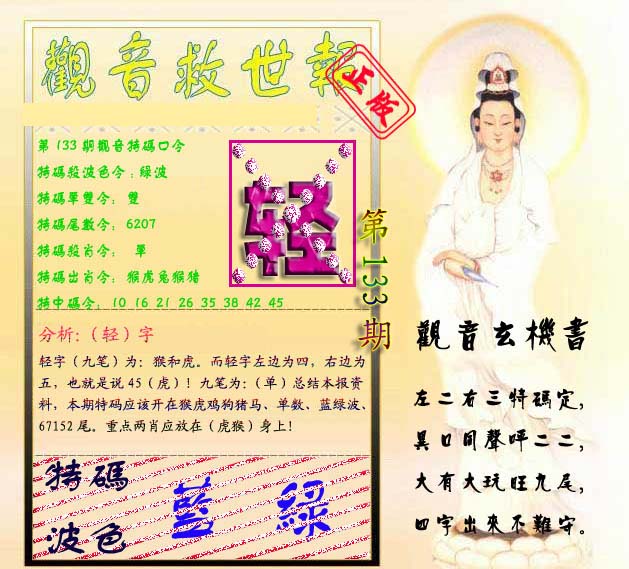 觀音救世報
正版
第133期觀音特碼口令
特碼殺波色令:綠波
特碼單雙令: 雙
特碼尾數令: 6207
特碼殺肖令: 單
特碼出肖令: 猴虎兔猴豬
特中碼令: 10 16 21 26 35 38 42 45
轻
第133期
分析:（轻）字
轻字（九笔）为：猴和虎。而轻字左边为四，右边为
五，也就是说45（虎）！九笔为：（单）总结本报资
料，本期特码应该开在猴虎鸡狗猪马、单数、蓝绿波、
67152尾。重点两肖应放在（虎猴）身上！
特碼
波色
藍 綠
觀音玄機書
左二右三特碼定,
異口同聲呼二二,
大有大玩旺九尾,
四字出來不難守。